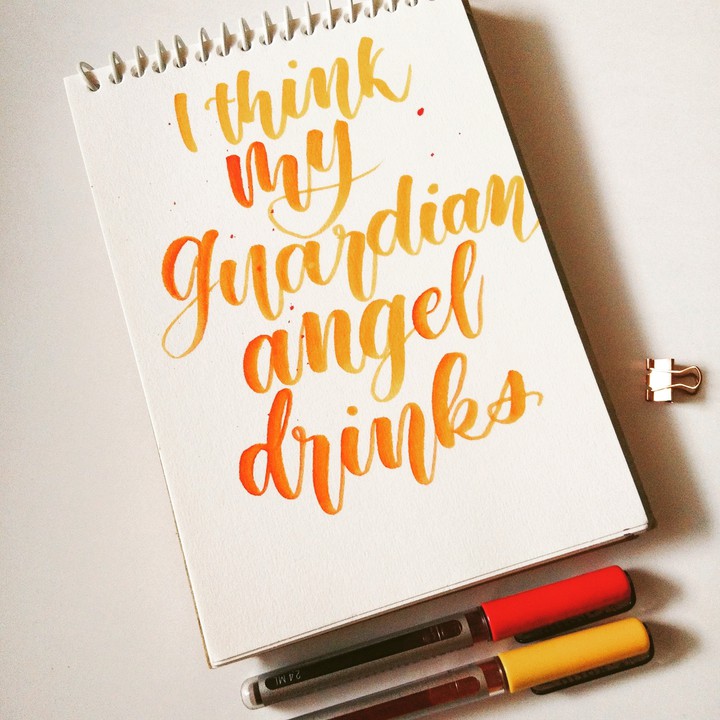 I think
my
guardian
angel
drinks
2.4 ML